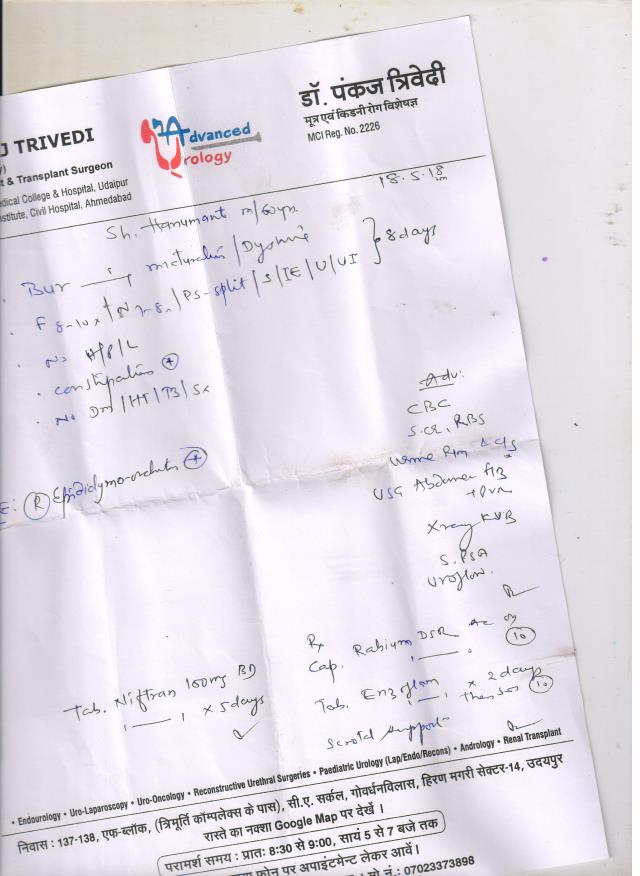 J TRIVEDI
t & Transplant Surgeon
edical College & Hospital, Udaipur
nstitute, Civil Hospital, Ahmedabad
Advanced
Urology
डॉ. पंकज त्रिवेदी
मूत्र एवं किडनी रोग विशेषज्ञ
MCI Reg. No. 2226
18.5.18
Sh. Hanumant m/60yr.
Bur micturation/Dysuria
8 days
F 8-10x/N 7-8/PS-split/S/IE/U/UI
No H/P/L
constipation +
No Dm/HT/TB/Sx
E: R Epididymo-orchitis +
Adv:
CBC
S.Cr, RBS
Urine R/m & C/s
USG Abdomen
+ PVR
Xray KUB
S. PSA
Uroflow.
Rx
Cap. Rabium DSR
10
Tab. Niftran 100mg BD
x 5days
Tab. Enzoflam
x 2 days
then SOS 10
Scrotal support
• Endourology • Uro-Laparoscopy • Uro-Oncology • Reconstructive Urethral Surgeries • Paediatric Urology (Lap/Endo/Recons) • Andrology • Renal Transplant
निवास : 137-138, एफ-ब्लॉक, (त्रिमूर्ति कॉम्पलेक्स के पास), सी.ए. सर्कल, गोवर्धनविलास, हिरण मगरी सेक्टर-14, उदयपुर
रास्ते का नक्शा Google Map पर देखें ।
परामर्श समय : प्रातः 8:30 से 9:00, सायं 5 से 7 बजे तक
फोन पर अपाइंटमेन्ट लेकर आवें।
मो नं.: 07023373898